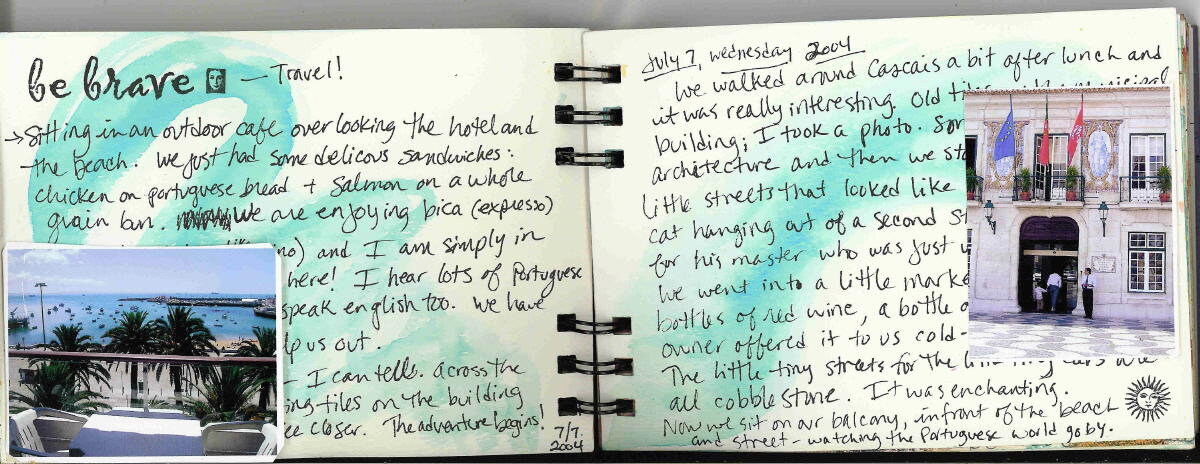 be brave — Travel!
→ Sitting in an outdoor cafe overlooking the hotel and
the beach. We just had some delicous sandwiches:
chicken on portuguese bread + salmon on a whole
grain bun. We are enjoying bica (expresso)
no) and I am simply in
here! I hear lots of Portuguese
speak english too. We have
p us out.
- I can tell. across the
ing tiles on the building
ee closer. The adventure begins!
7/7.
2004
July 7, wednesday 2004
We walked around Cascais a bit after lunch and
it was really interesting. Old municipal
building; I took a photo.
architecture and then we
little streets that looked like
cat hanging out of a second
for his master who was just
We went into a little
bottles of red wine, a bottle
owner offered it to us cold-
The little tiny streets for the cars are
all cobblestone. It was enchanting.
Now we sit on our balcony, infront of the beach
and street - watching the Portuguese world go by.